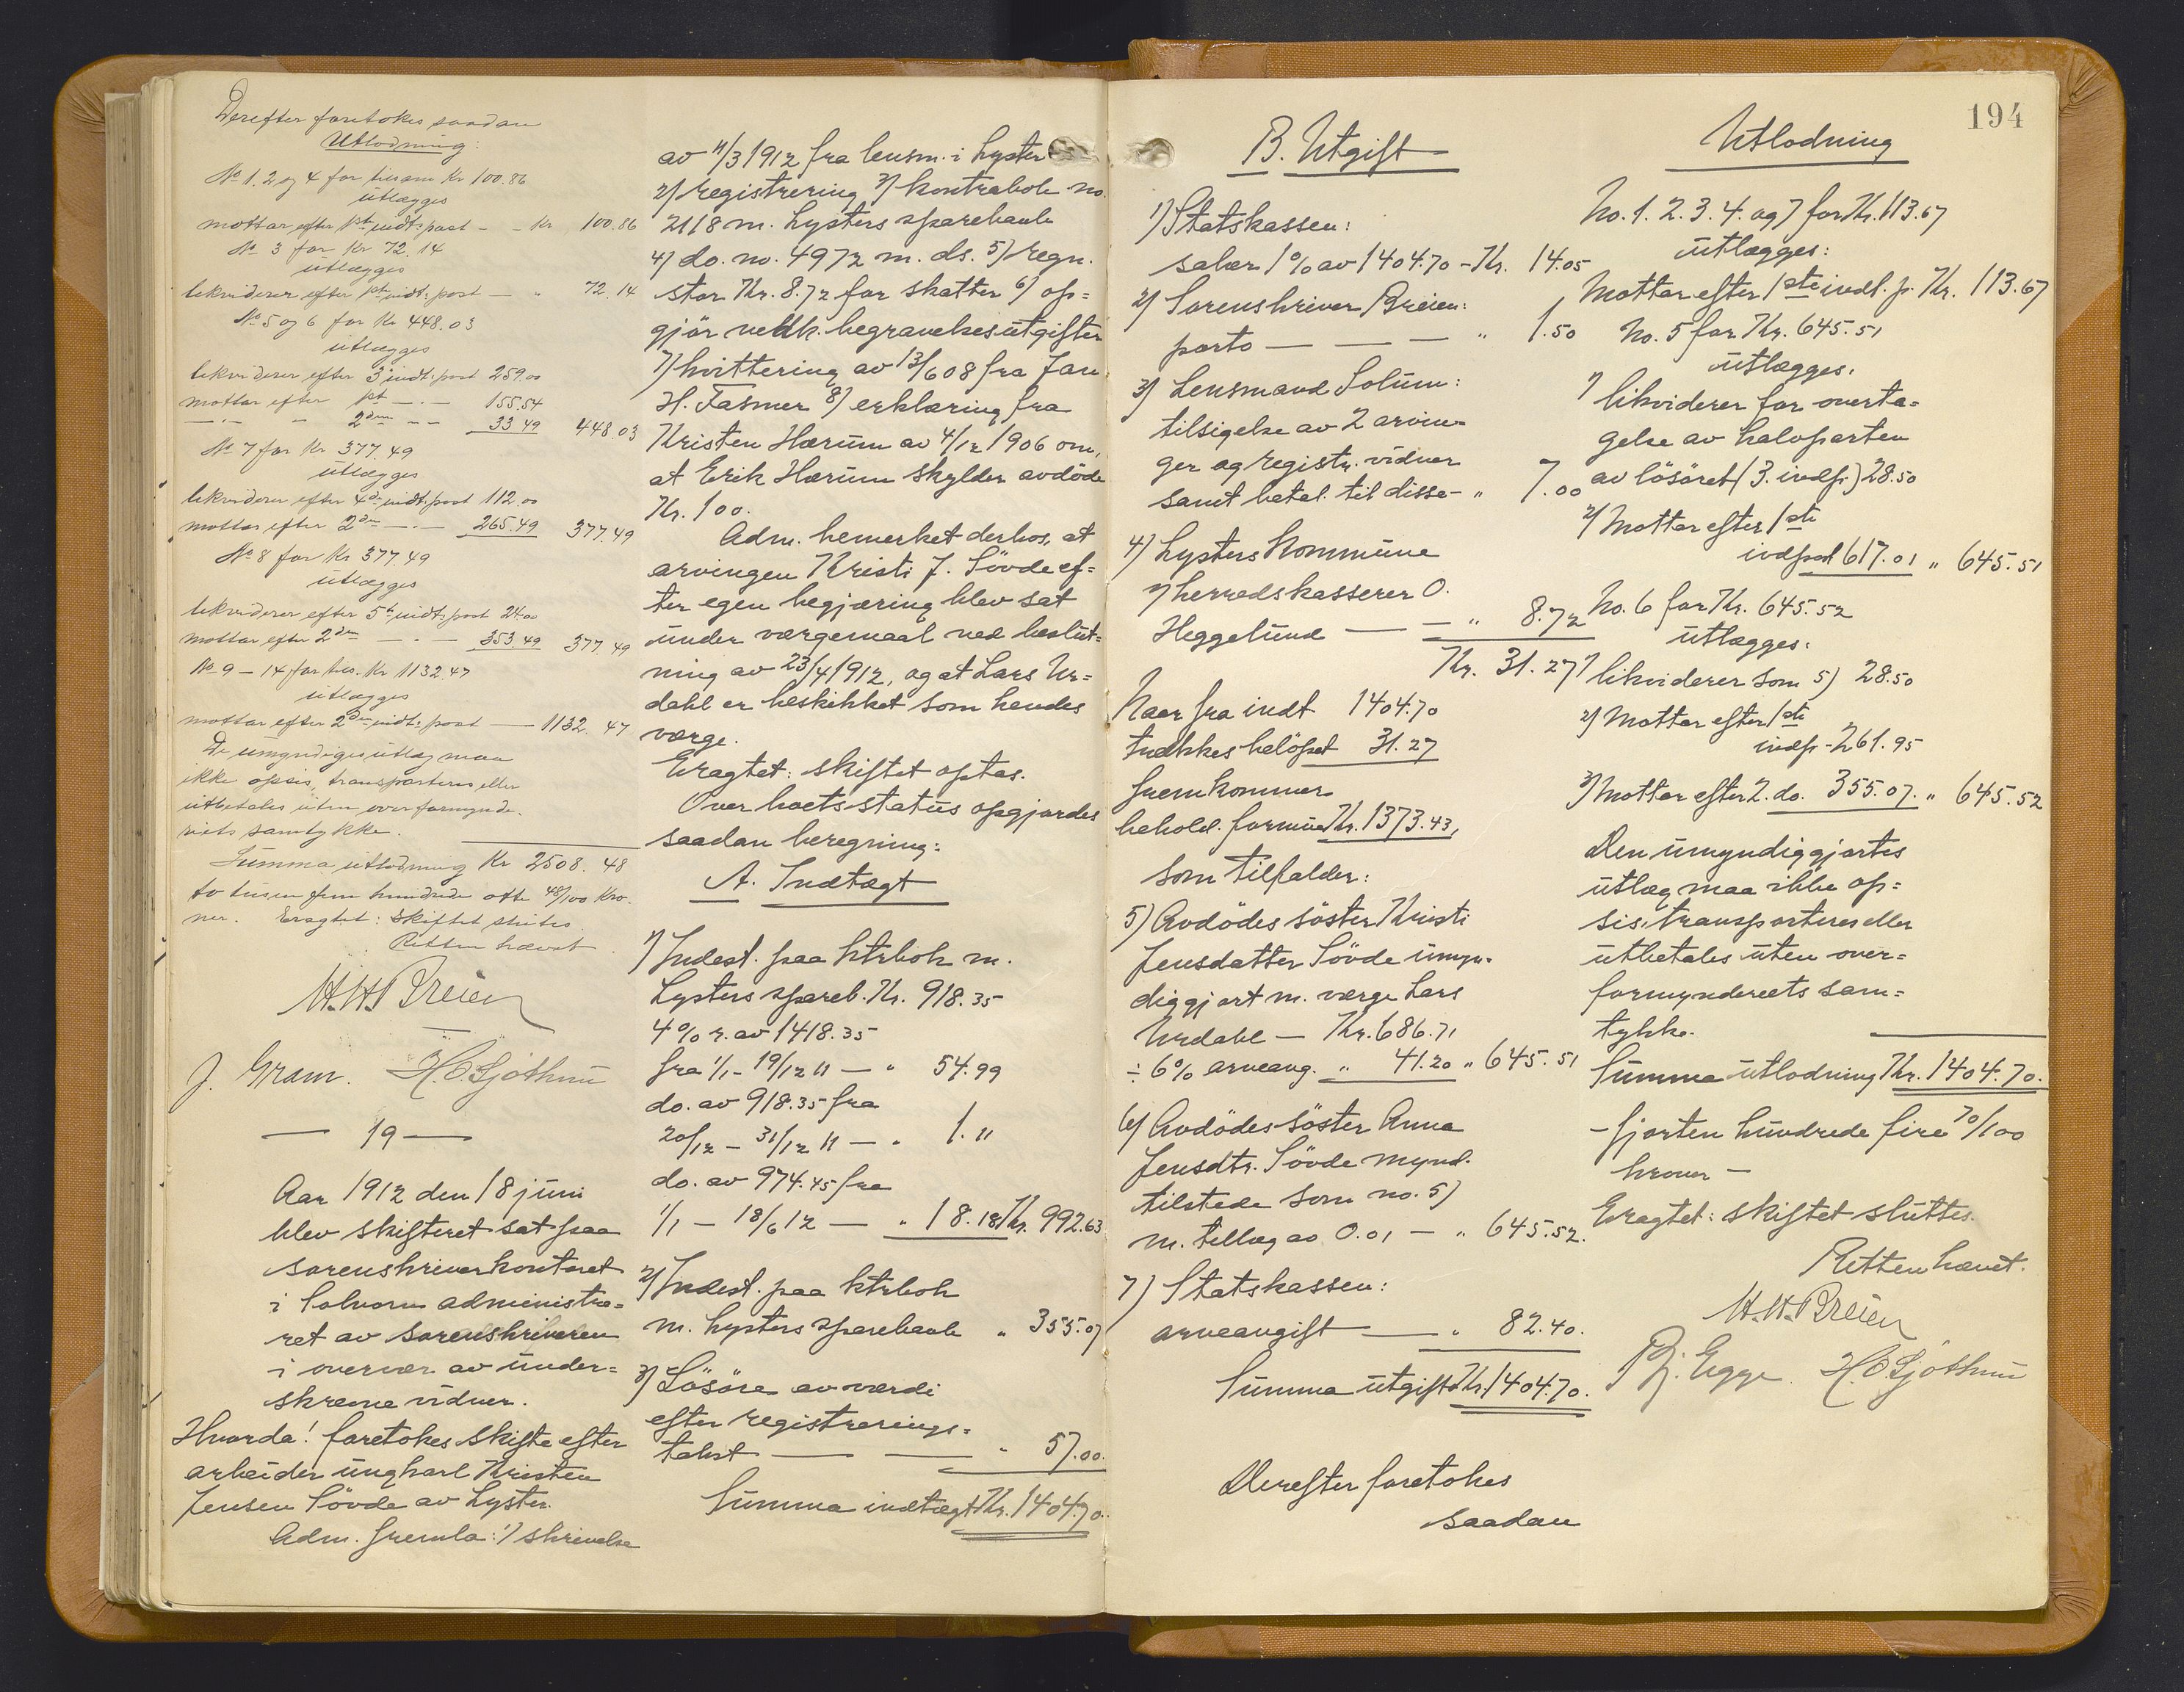 Derefter foretokes saadan
Utlodning:
No 1. 2 og 4 for tilsam Kr 100.86
utlægges
mottar efter 1st indt. post - - Kr 100.86
No 3 for Kr 72.14
utlægges
likviderer efter 1st indt. post - " 72.14
No 5 og 6 for Kr 448.03
utlægges
likviderer efter 3 indt. post 259.00
mottar efter 1st - . - 155.54
- . - " 2den - - 33.49 448.03
No 7 for Kr 377.49
utlægges
likviderer efter 4de indt. post 112.00
mottar efter 2den - . - 265.49 377.49
No 8 for Kr 377.49
utlægges
likviderer efter 5te indt. post 24.00
mottar efter 2den - . - 353.49 377.49
No 9 - 14 for tils. Kr 1132.47
utlægges
mottar efter 2den indt. post - 1132.47
De umyndiges utlæg maa
ikke opsis, transporteres eller
utbetales uten overformynde-
riets samtykke.
Summa utlodning Kr 2508.48
to tusen fem hundrede otte 48/100 Kro-
ner. Eragtet: Skiftet sluttes.
Retten hævet.
H.H. Breien
J. Gram. H.O. Sjøthun
- 19 -
Aar 1912 den 18 juni
blev skifteret sat paa
sorenskriverkontoret
i Solvorn administre=
ret av sorenskriveren
i overvær av under=
skrevne vidner.
Hvorda! foretokes skifte efter
arbeider ungkarl Kristen
Jensen Søvde av Lyster.
Adm. fremla: 1) skrivelse
av 11/3 1912 fra lensm. i Lyster
2) registrering 3) kontrabok no.
2118 m. Lysters sparebank
4) do. no. 4972 m. ds. 5) regn.
stor Kr. 8.72 for skatter 6) op=
gjør vedk. begravelsesutgifter
7) kvittering av 13/6 08 fra Jan
H. Fasmer 8) erklæring fra
Kristen Hærum av 4/12 1906 om,
at Erik Hærum skylder avdøde
Kr. 100.
Adm. bemerket derhos, at
arvingen Kristi J. Søvde ef=
ter egen begjæring blev sat
under værgemaal ved beslut=
ning av 23/4 1912, og at Lars Ur=
dahl er beskikket som hendes
værge.
Eragtet: skiftet optas.
Over boets status opgjordes
saadan beregning:
A. Indtægt
1) Indest. paa ktrbok m.
Lysters spareb. Kr. 918.35
4% r. av 1418.35
fra 1/1 - 19/12 11 - " 54.99
do. av 918.35 fra
20/12 - 31/12 11 - " 1.11
do. av 974.45 fra
1/1 - 18/6 12 - " 18.18 Kr. 992.63
2) Indest. paa ktrbok
m. Lysters sparebank " 355.07
3) Løsøre av værdi
efter registrerings-
takst - - " 57.00.
Summa indtægt Kr. 1404.70.
194
B. Utgift
1) Statskassen:
salær 1% av 1404.70 - Kr. 14.05
2) Sorenskriver Breien:
porto - - - " 1.50
3) Lensmand Solum:
tilsigelse av 2 arvin-
ger og registr. vidner
samt betal. til disse - " 7.00
4) Lysters kommune
v/ herredskasserer O.
Heggelund - - " 8.72
Kr. 31.27
Naar fra indt 1404.70
trækkes beløpet 31.27
fremkommer
behold. formue Kr. 1373.43,
som tilfalder:
5) Avdødes søster Kristi
Jensdatter Søvde umyn-
diggjort m. værge Lars
Urdahl - Kr. 686.71
÷ 6% arveavg. " 41.20 " 645.51
6) Avdødes søster Anna
Jensdtr. Søvde mynd.
tilstede som no. 5)
m. tillæg av 0.01 - " 645.52.
7) Statskassen:
arveavgift - " 82.40.
Summa utgift Kr. 1404.70.
Derefter foretokes
saadan
Utlodning
No. 1. 2. 3. 4. og 7 for Kr. 113.67
utlægges:
Mottar efter 1ste indt. p. Kr. 113.67
No. 5 for Kr. 645.51
utlægges.
1) likviderer for overta=
gelse av halvparten
av løsøret (3. indp.) 28.50
2) Mottar efter 1ste
indpost 617.01 " 645.51
No. 6 for Kr. 645.52
utlægges:
1) likviderer som 5) 28.50
2) Mottar efter 1ste
indp. - 261.95
3) Mottar efter 2. do. 355.07. " 645.52
Den umyndiggjortes
utlæg maa ikke op=
sis, transporteres eller
utbetales uten over=
formynderiets sam=
tykke.
Summa utlodning Kr. 1404.70.
- fjorten hundrede fire 70/100
kroner -
Eragtet: skiftet sluttes.
Retten hævet.
H.H. Breien
Egge H.O. Sjøthun